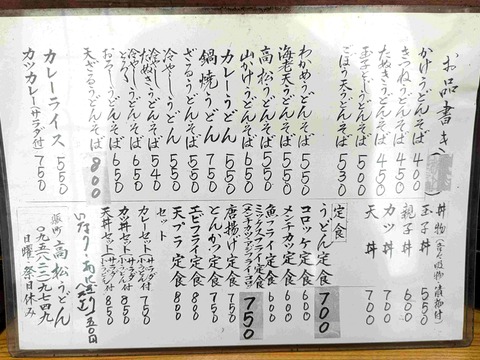 お品書き
かけうどんそば 400
きつねうどんそば 450
たぬきうどんそば 450
玉子とじうどんそば 500
ごぼう天うどんそば 530
わかめうどんそば 550
海老天うどんそば 550
高松うどんそば 650
山かけうどんそば 550
カレーうどん 550
鍋焼うどん 750
ざるうどんそば 550
冷やしうどんそば
冷やしたぬきうどんそば 540
冷やしとろろうどんそば 650
おろしうどんそば 650
天ざるうどんそば 800
カレーライス 550
カツカレー サラダ付 750
丼物
玉子丼 550
親子丼 600
カツ丼 700
天丼 700
定食
うどん定食 700
コロッケ定食 600
メンチカツ定食 600
魚フライ定食 600
ミックスフライ定食 750
唐揚げ定食 750
とんかつ定食 750
エビフライ定食 800
天プラ定食 800
セット
カレーセット 750
カツ丼セット 850
天丼セット 850
飯町 高松うどん
日曜 祭日休み